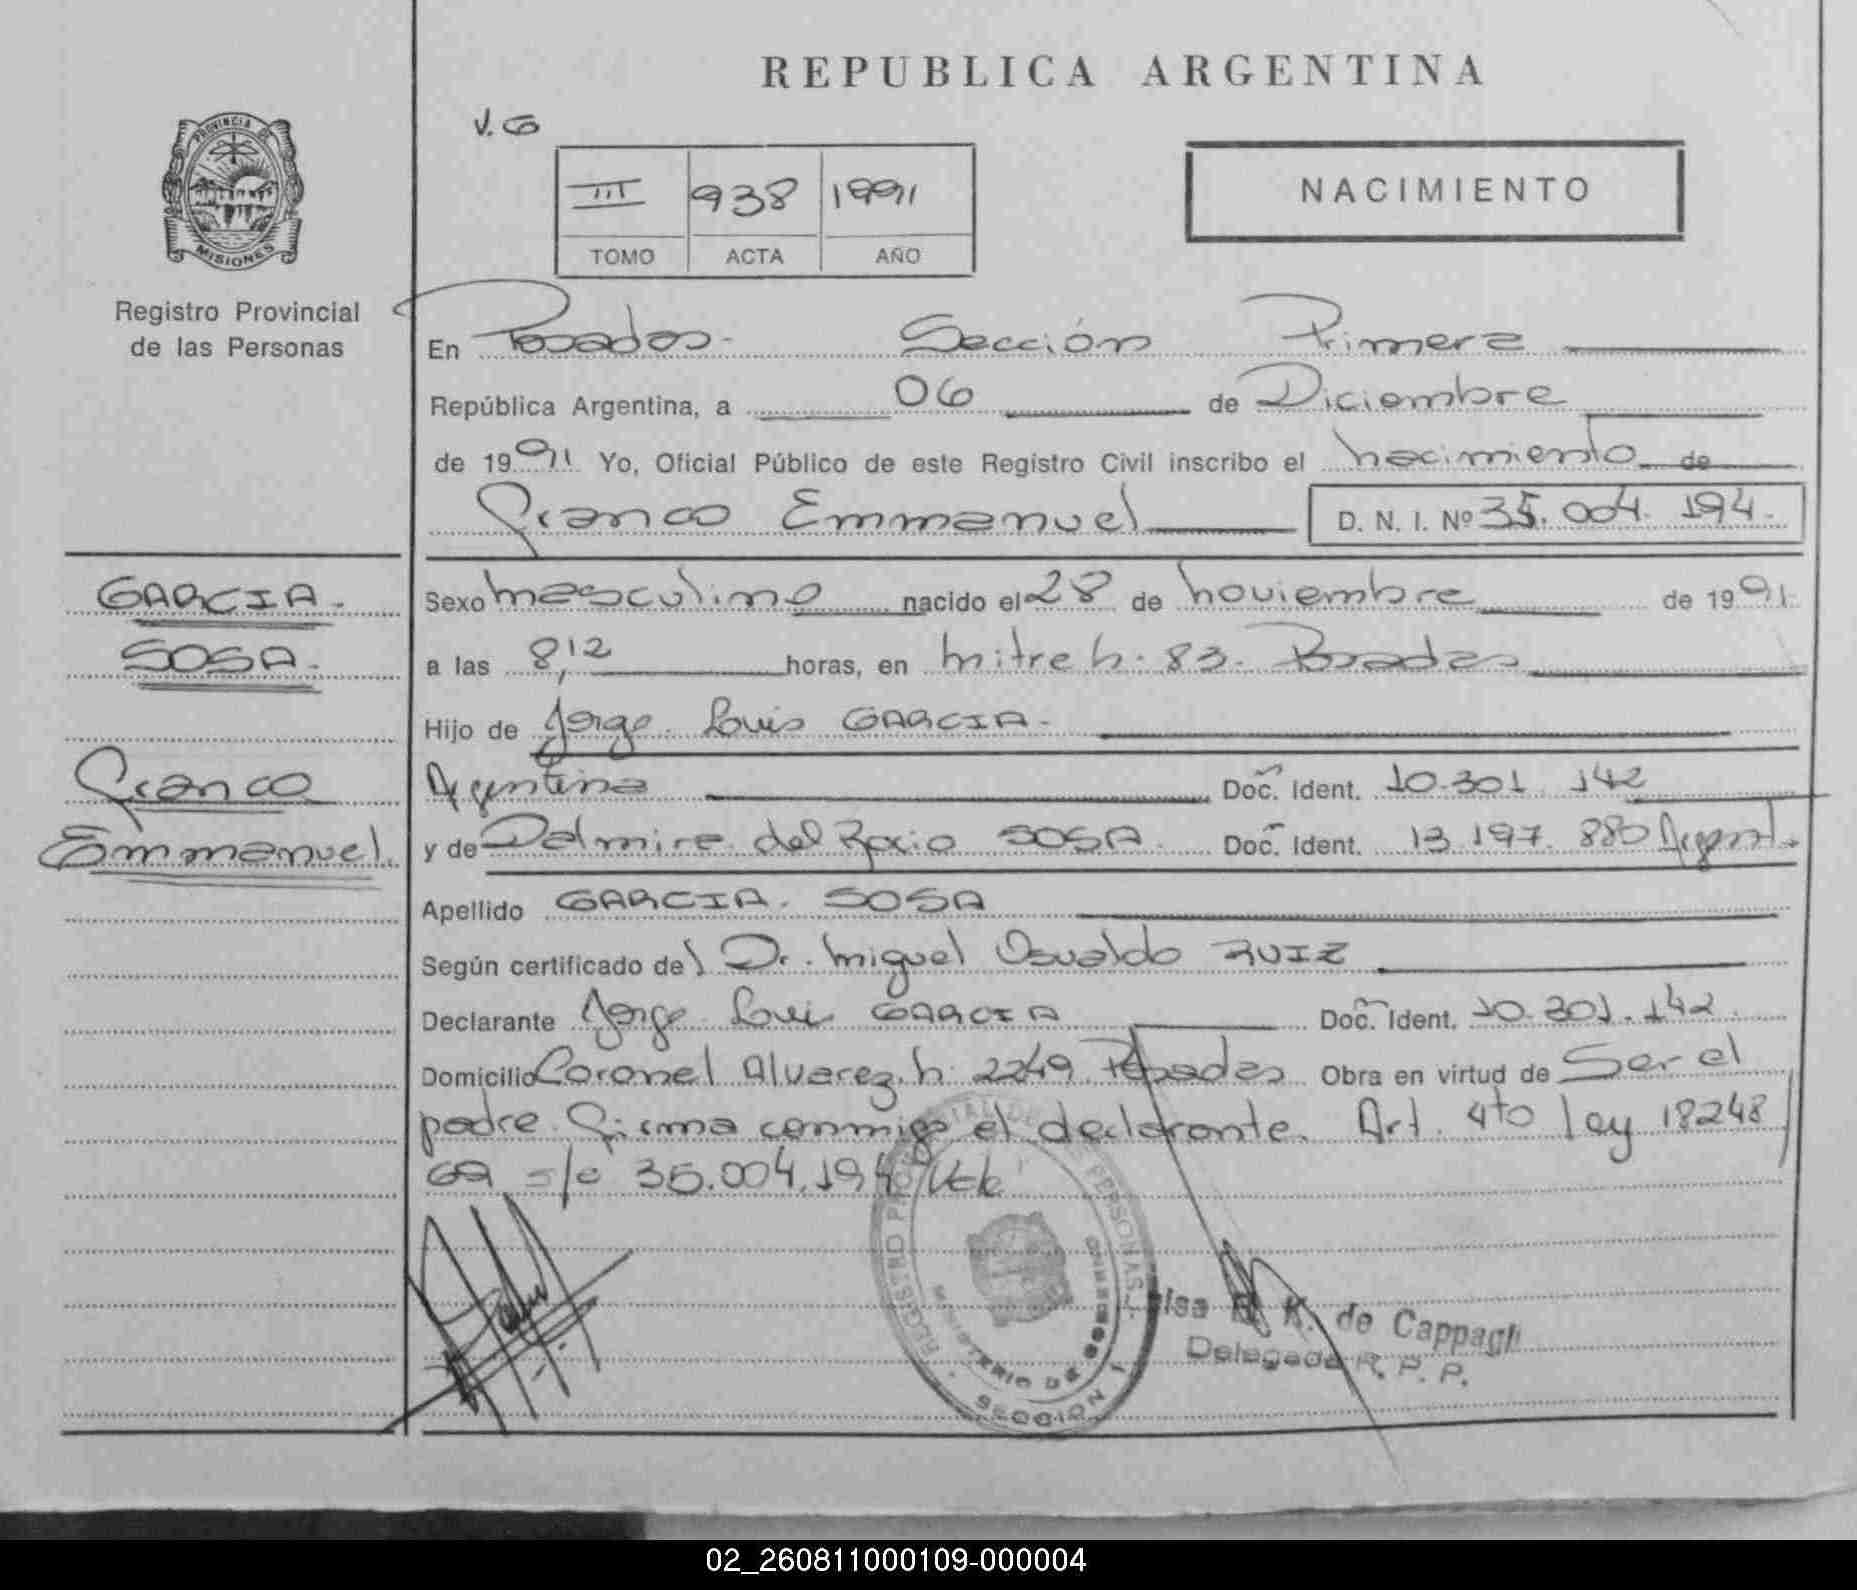 REPUBLICA ARGENTINA
V.G
PROVINCIA DE
MISIONES
Registro Provincial
de las Personas
III 938 1991
TOMO ACTA AÑO
NACIMIENTO
En Posadas - Sección Primera
República Argentina, a 06 de Diciembre
de 1991 Yo, Oficial Público de este Registro Civil inscribo el nacimiento de
Franco Emmanuel D. N. I. Nº 35.004.194.
GARCIA.
SOSA.
Franco
Emmanuel.
Sexo masculino nacido el 28 de noviembre de 1991
a las 8,12 horas, en mitre h. 83. Posadas
Hijo de Jorge Luis GARCIA.
Argentina Doc. Ident. 10.301.142
y de Delmira del Rocio SOSA. Doc. Ident. 13.197.880 Argent.
Apellido GARCIA. SOSA
Según certificado del Dr. miguel Osvaldo RUIZ
Declarante Jorge Luis GARCIA Doc. Ident. 10.301.142.
Domicilio Coronel Alvarez. h. 2249 Posadas Obra en virtud de Ser el
padre. Firma conmigo el declarante. Art. 4to ley 18248/
69 s/c 35.004.194 Vale
REGISTRO PROVINCIAL DE PERSONAS
MINISTERIO DE GOBIERNO
SECCION 1
K. de Cappagli
Delegada R. P. P.
02_260811000109-000004